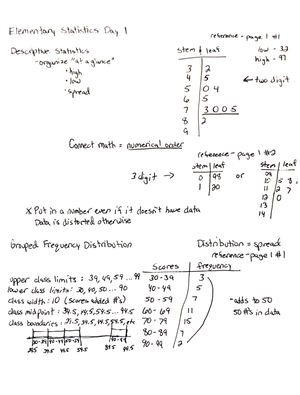 Elementary Statistics Day 1
reference - page 1 #1
Descriptive Statistics
- organize "at a glance"
• high
• low
• spread
stem | leaf
3 | 2
4 | 5
5 | 0 4
6 | 5
7 | 3 0 0 5
8 | 2
9
low = 32
← two digit
Correct math = numerical order
reference - page 1 #2
3 digit →
stem | leaf
0 | 98
1 | 20
or
stem | leaf
09
10 | 5 8
11 | 2 7
12 | 0
13
14
x Put in a number even if it doesn't have data
Data is distorted otherwise
Grouped Frequency Distribution
Distribution = spread
reference - page 1 #1
upper class limits: 39, 49, 59 ... 99
lower class limits: 30, 40, 50 ... 90
class width: 10 (Scores added #'s)
class midpoint: 34.5, 44.5, 54.5 ... 94.5
class boundaries:
Scores | frequency
30-39 | 3
40-49 | 5
50-59 | 7
60-69 | 11
70-79 | 15
80-89 | 7
90-99 | 2
- adds to 50
50 #'s in data
30-39 40-49 50-59 90-99
29.5 39.5 49.5 59.5 89.5 99.5